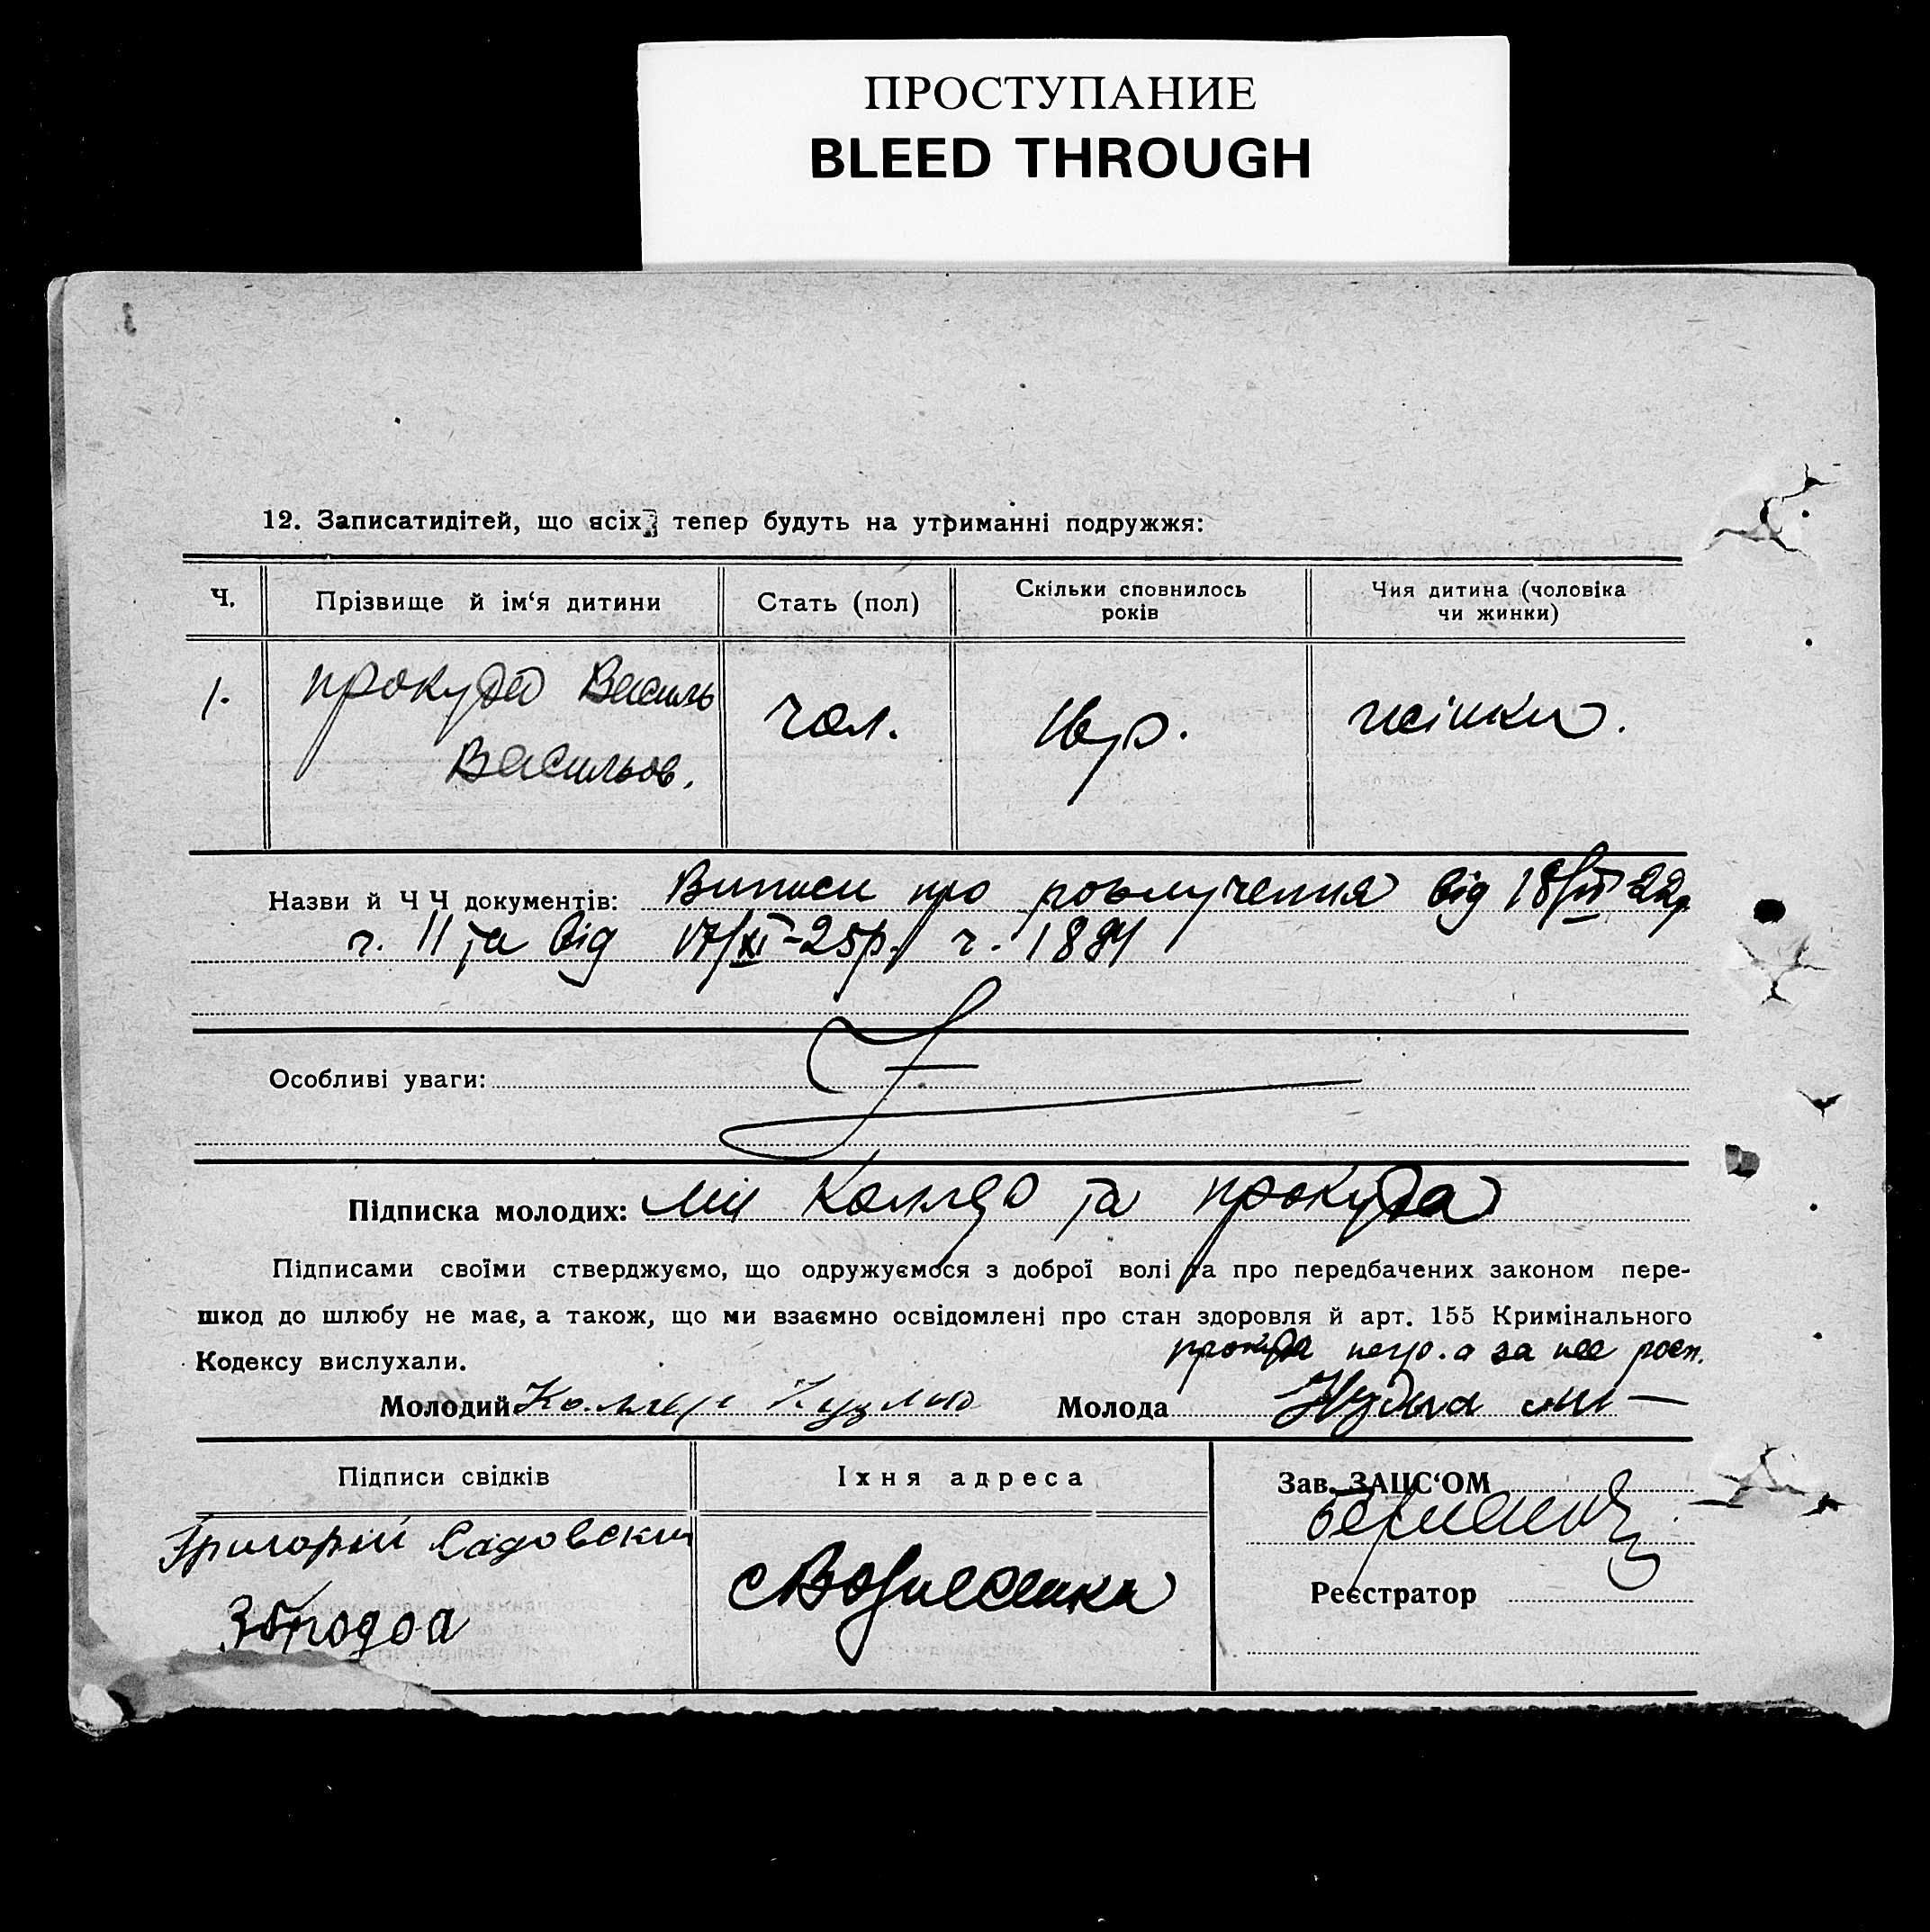 ПРОСТУПАНИЕ
BLEED THROUGH
12. Записатидітей, що всіх тепер будуть на утриманні подружжя:
Ч.
Прізвище й ім‘я дитини
Стать (пол)
Скільки сповнилось
років
Чия дитина (чоловіка
чи жинки)
1.
прокуда Василь
Васильов.
чол.
16 р.
жінки.
Назви й Ч Ч документів: Виписи про розлучення від 18/ІІІ-22р.
ч. 11 та від 17/ХІ-25р. ч. 1891
Особливі уваги:
Підписка молодих: Ми Коляда та прокуда
Підписами своїми стверджуємо, що одружуємося з доброї волі та про передбачених законом пере-
шкод до шлюбу не має, а також, що ми взаємно освідомлені про стан здоровля й арт. 155 Кримінального
Кодексу вислухали.
прокуда негр. а за нее росп.
Молодий Коляда Кузьма
Молода
Підписи свідків
Їхня адреса
Зав. ЗАЦС‘ОМ
Григорій Садовский
с Вознесенка
Реєстратор